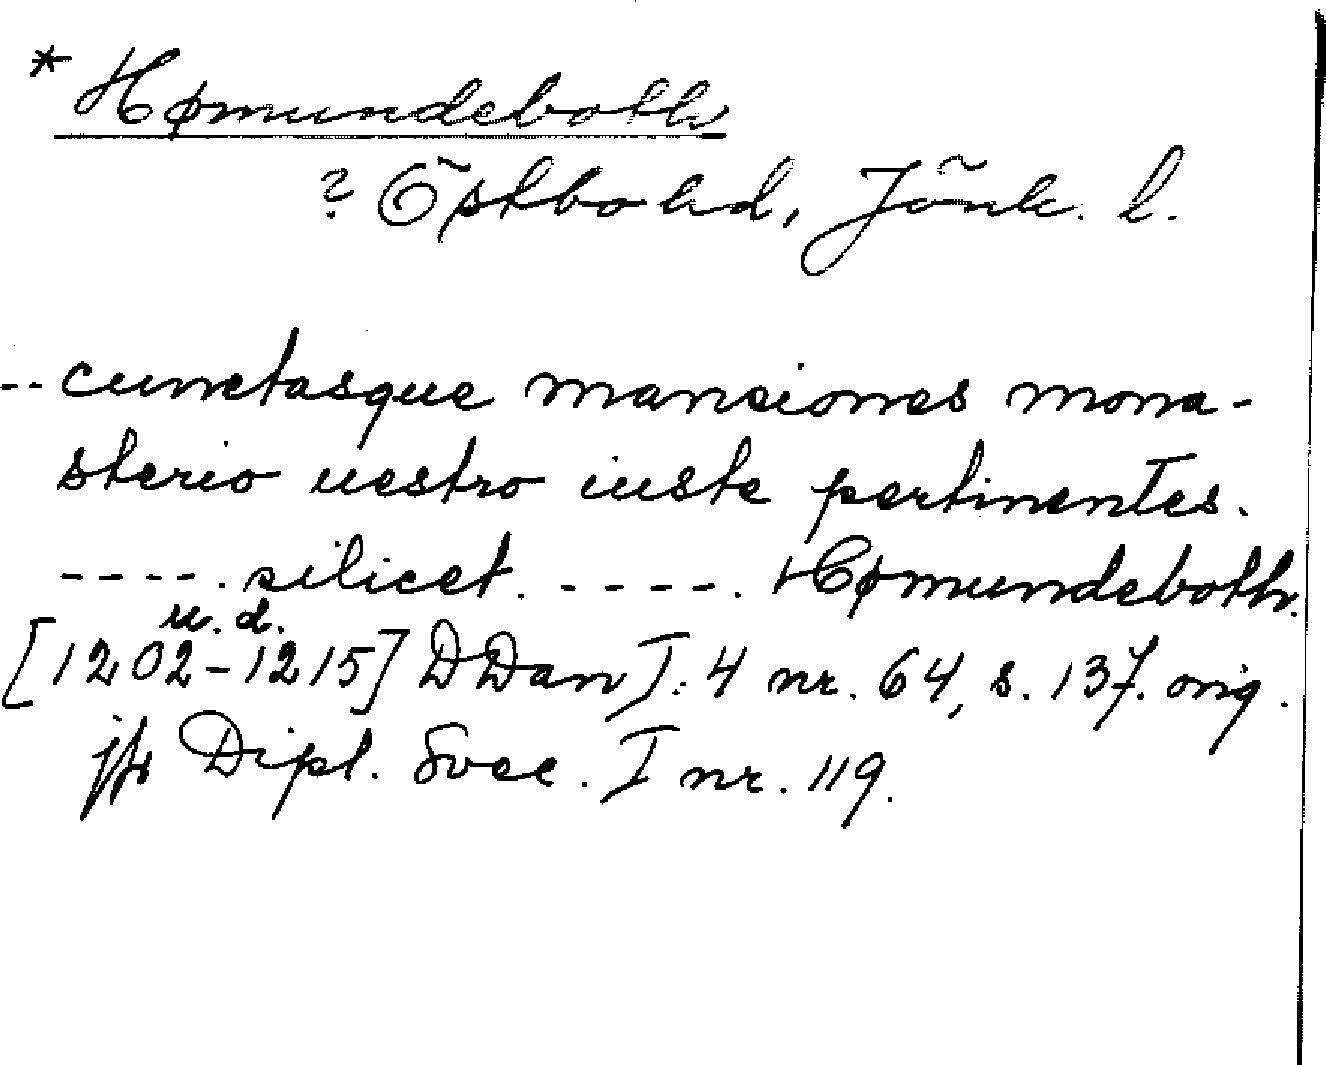 * Hømundeboth
? Östbo hd, Jönk. l.
-- cunctasque mansiones mona-
sterio uestro iuste pertinentes.
----. silicet. ----. Hømundeboth.
u. d.
[1202-1215] DDan I:4 nr. 64, s. 137. orig.
jfr Dipl. Svec. I nr. 119.